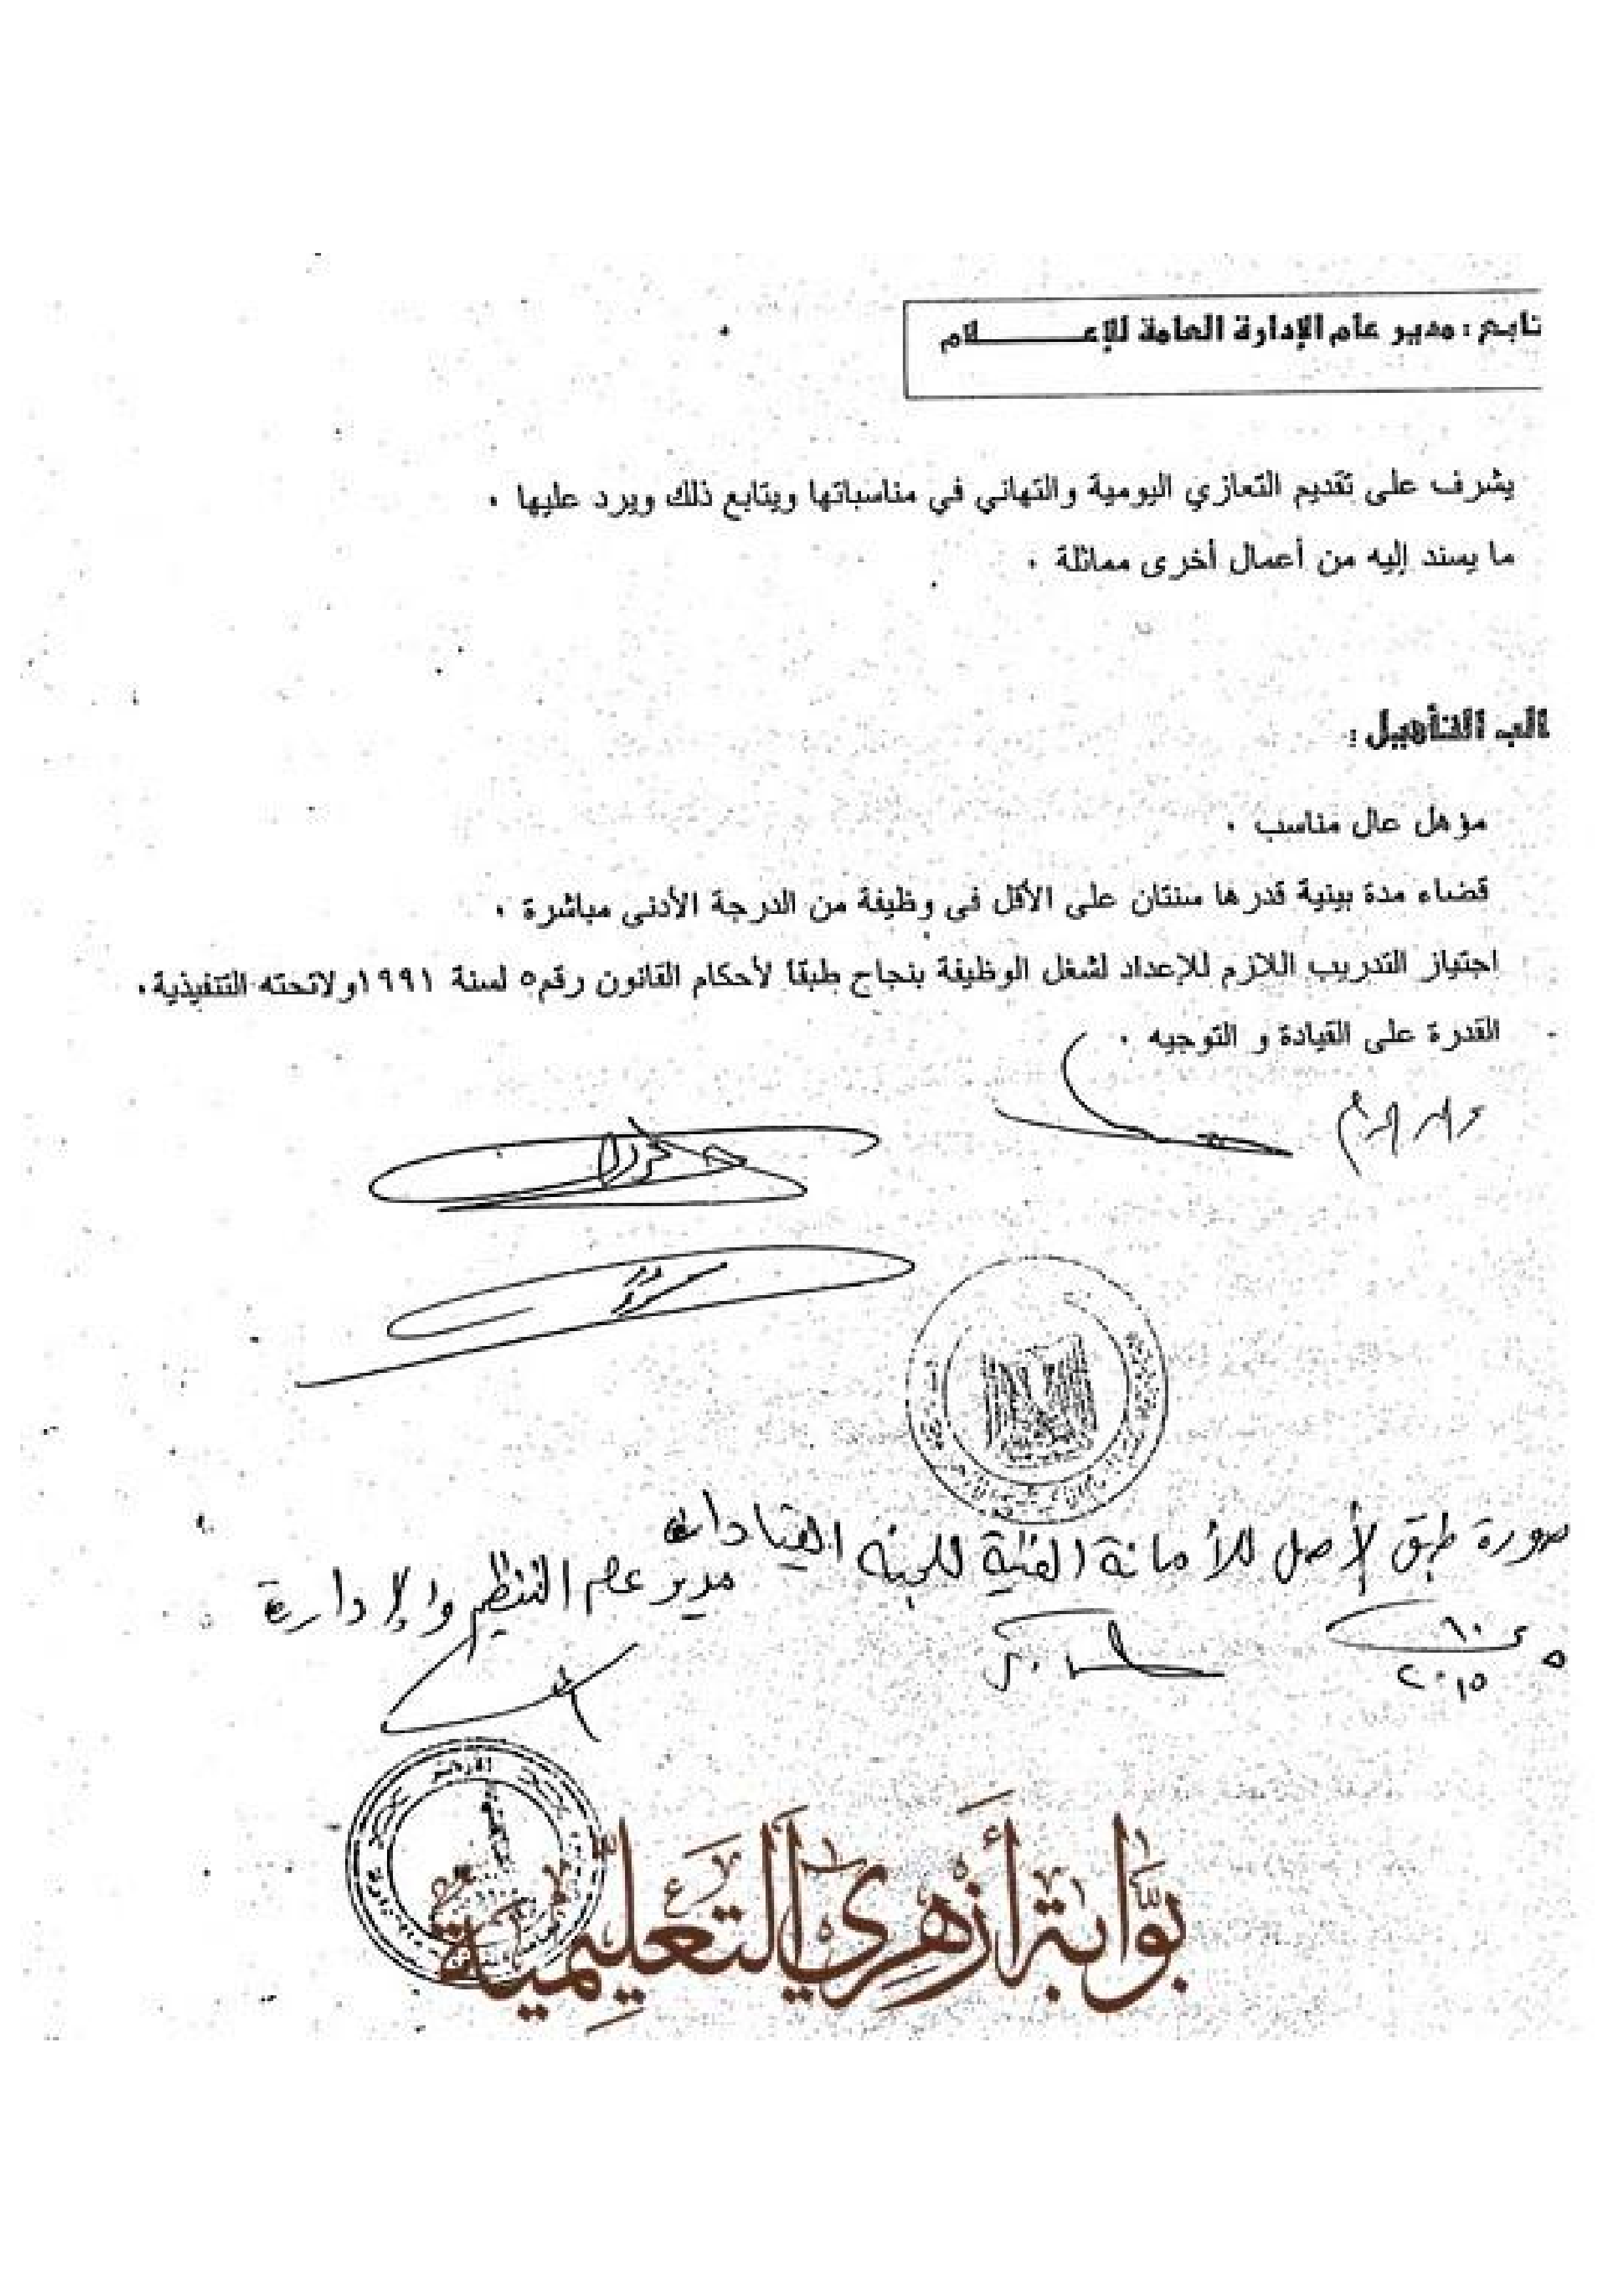 تابع : مدير عام الإدارة العامة للإعـــــــلام
يشرف على تقديم التعازي اليومية والتهاني في مناسباتها ويتابع ذلك ويرد عليها ٠
ما يسند إليه من أعمال أخرى مماثلة ٠
الب التأهيل :
مؤهل عال مناسب ٠
قضاء مدة بينية قدرها سنتان على الأقل فى وظيفة من الدرجة الأدنى مباشرة ٠
اجتياز التدريب اللازم للإعداد لشغل الوظيفة بنجاح طبقا لأحكام القانون رقم٥ لسنة ١٩٩١ولائحته التنفيذية ٠
- القدرة على القيادة و التوجيه ٠
صورة طبق لأصل للأمانة الفنية للجنة القيادات
مدير عام التنظيم والإدارة
٢٠١٥
بوابة أزهري التعليمية